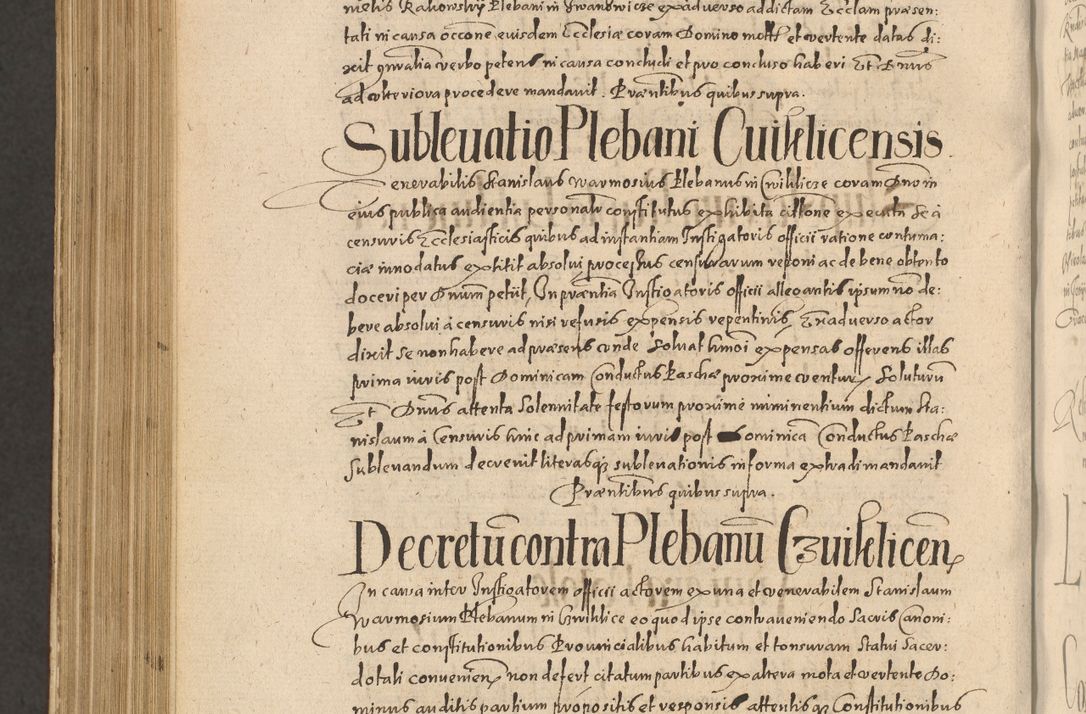 nielis Rakowsky Plebani in Iwanowicze ex adverso addictam Ecclam præsen:
tati in causa occone eiusdem Ecclesiæ coram Domino mott et vertente datas di:
xit gnralia verbo petens in causa concludi et pro concluso haberi Et Dnus
ad ulteriora procedere mandavit. Præntibus quibus supra.
Sublevatio Plebani Cuiklicensis
Venerabilis Stanislaus Warmosius Plebanus in Cwiklicze coram Dno in
eius publica audientia personalr constitutus exhibita cittone executa se à
censuris Ecclesiasticis quibus ad instantiam Instigatoris officii ratione contuma:
ciæ innodatus extitit absolvi processus censurarum reponi ac de bene obtento
doceri per Dnum petiit, In præntia Instigatoris officii allegantis ipsum nō de:
bere absolvi à censuris nisi refusis expensis repentinis, Et ex adverso actor
dixit se non habere ad præsens unde solvat hmōi expensas offerens illas
prima iuris post Dominicam Conductus Paschæ proxime ventur soluturū
Et Dnus attenta solennitate festorum proxime imminentium dictum Sta:
nislaum à censuris hinc ad primam iuris post Dominicā Conductus Paschæ
sublevandum decrevit literasq sublevationis in forma extradi mandavit
Præntibus quibus supra.
Decretū contra Plebanū Czuiklicen
In causa inter Instigatorem officii actorem ex una et venerabilem Stanislaum
Warmosium Plebanum in Czwiklice eo quod ipse contraveniendo Sacris Canoni:
bus et constitutionibus Provincialibus habitum et tonsuram Statui Sacer:
dotali convenien non defert citatum partibus ex altera mota et vertente Do:
minus auditis partium propositis et responsis attentisq Constitutionibus